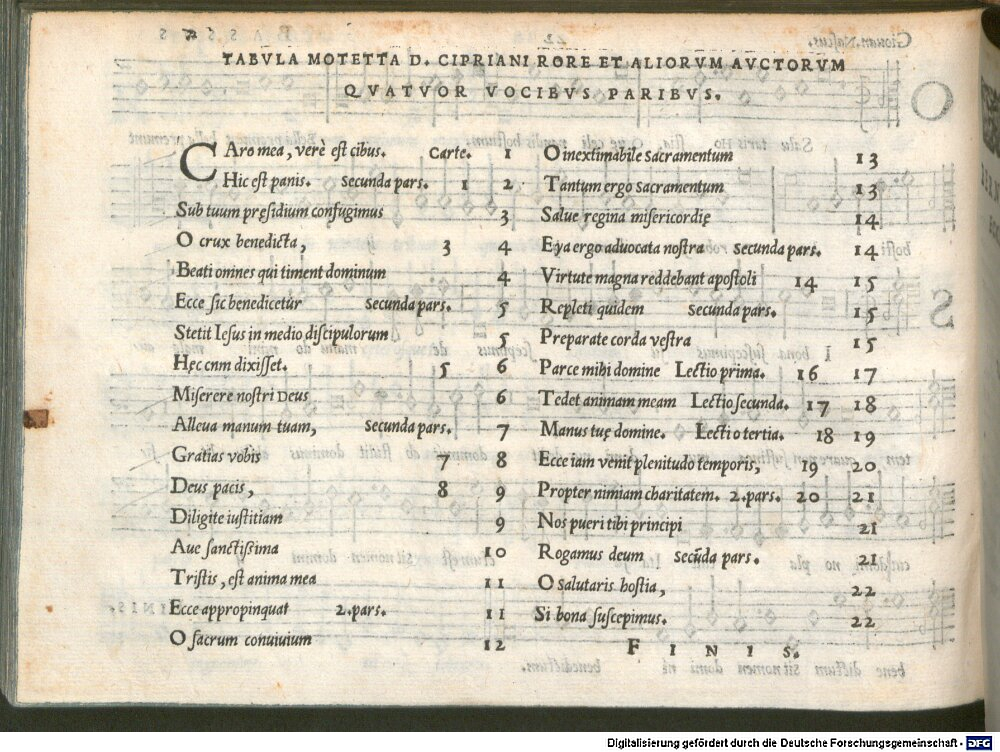 TABVLA MOTETTA D. CIPRIANI RORE ET ALIORVM AVCTORVM
QVATVOR VOCIBVS PARIBVS.
CAro mea, verè est cibus. Carte. 1
Hic est panis. Secunda pars. 1 2
Sub tuum pręsidium confugimus 3
O crux benedicta, 3 4
Beati omnes qui timent dominum 4
Ecce sic benedicetur Secunda pars. 5
Stetit Iesus in medio discipulorum 5
Hęc cnm dixisset. 5 6
Miserere nostri Deus 6
Alleua manum tuam, Secunda pars. 7
Gratias vobis 7 8
Deus pacis, 8 9
Diligite iustitiam 9
Aue sanctißima 10
Tristis, est anima mea 11
Ecce appropinquat 2.pars. 11
O sacrum conuiuium 12
O inextimabile sacramentum 13
Tantum ergo sacramentum 13
Salue regina misericordię 14
Eya ergo aduocata nostra Secunda pars. 14
Virtute magna reddebant apostoli 14 15
Repleti quidem Secunda pars. 15
Preparate corda vestra 15
Parce mihi domine Lectio prima. 16 17
Tedet animam meam Lectio secunda. 17 18
Manus tuę domine. Lectio tertia. 18 19
Ecce iam venit plenitudo temporis, 19 20
Propter nimiam charitatem. 2.pars. 20 21
Nos pueri tibi principi 21
Rogamus deum Secūda pars. 21
O salutaris hostia, 22
Si bona suscepimus. 22
FINIS.
Digitalisierung gefördert durch die Deutsche Forschungsgemeinschaft - DFG